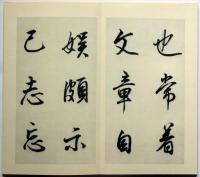 也常着
文章自
娯頗示
己志忘